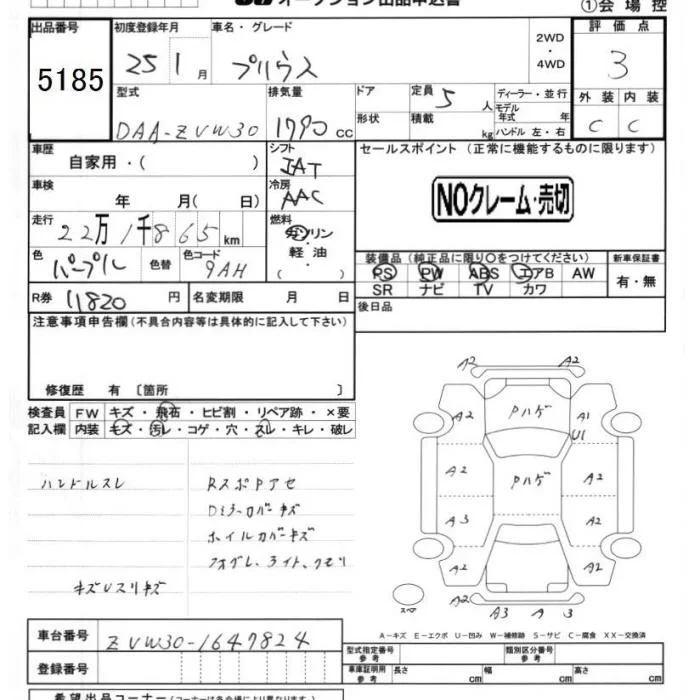 オークション出品申込書
①会場控
出品番号 初度登録年月 車名・グレード 評価点
5185 25 1月 プリウス 2WD ・ 4WD 3
型式 排気量 ドア 定員 5人 ディーラー・並行 外装 内装
DAA-ZVW30 1790cc 形状 積載 kg モデル年式 年 C C
ハンドル 左・右
車歴 自家用・( ) シフト IAT セールスポイント (正常に機能するものに限ります)
車検 年 月( 日) 冷房 AAC NOクレーム・売切
走行 22万1千865km 燃料 ガソリン
軽油
( )
色 パープル 色替 色コード 9AH
装備品 (純正品に限り○をつけてください) 新車保証書
PS PW ABS エアB AW 有・無
SR ナビ TV カワ
R券 11820円 名変期限 月 日 後日品
注意事項申告欄 (不具合内容等は具体的に記入して下さい)
修復歴 有 〔箇所 〕
検査員 FW キズ・飛石・ヒビ割・リペア跡・×要
記入欄 内装 キズ・汚レ・コゲ・穴・スレ・キレ・破レ
ハンドルスレ RスポPアセ
Dミラーカバーキズ
ホイルカバーキズ
フォグレ、ライト、クモリ
キズUスリキズ
A2 A2
A2 Pハゲ A1
U1
A2 Pハゲ A2
A3 A2
A2 A2
スペア A2 A3 A 3
A-キズ E-エクボ U-凹み W-補修跡 S-サビ C-腐食 XX-交換済
車台番号 ZVW30-1647824
型式指定番号 参考 類別区分番号 参考
登録番号 車庫証明用 参考 長さ cm 幅 cm 高さ cm
希望出品コーナー